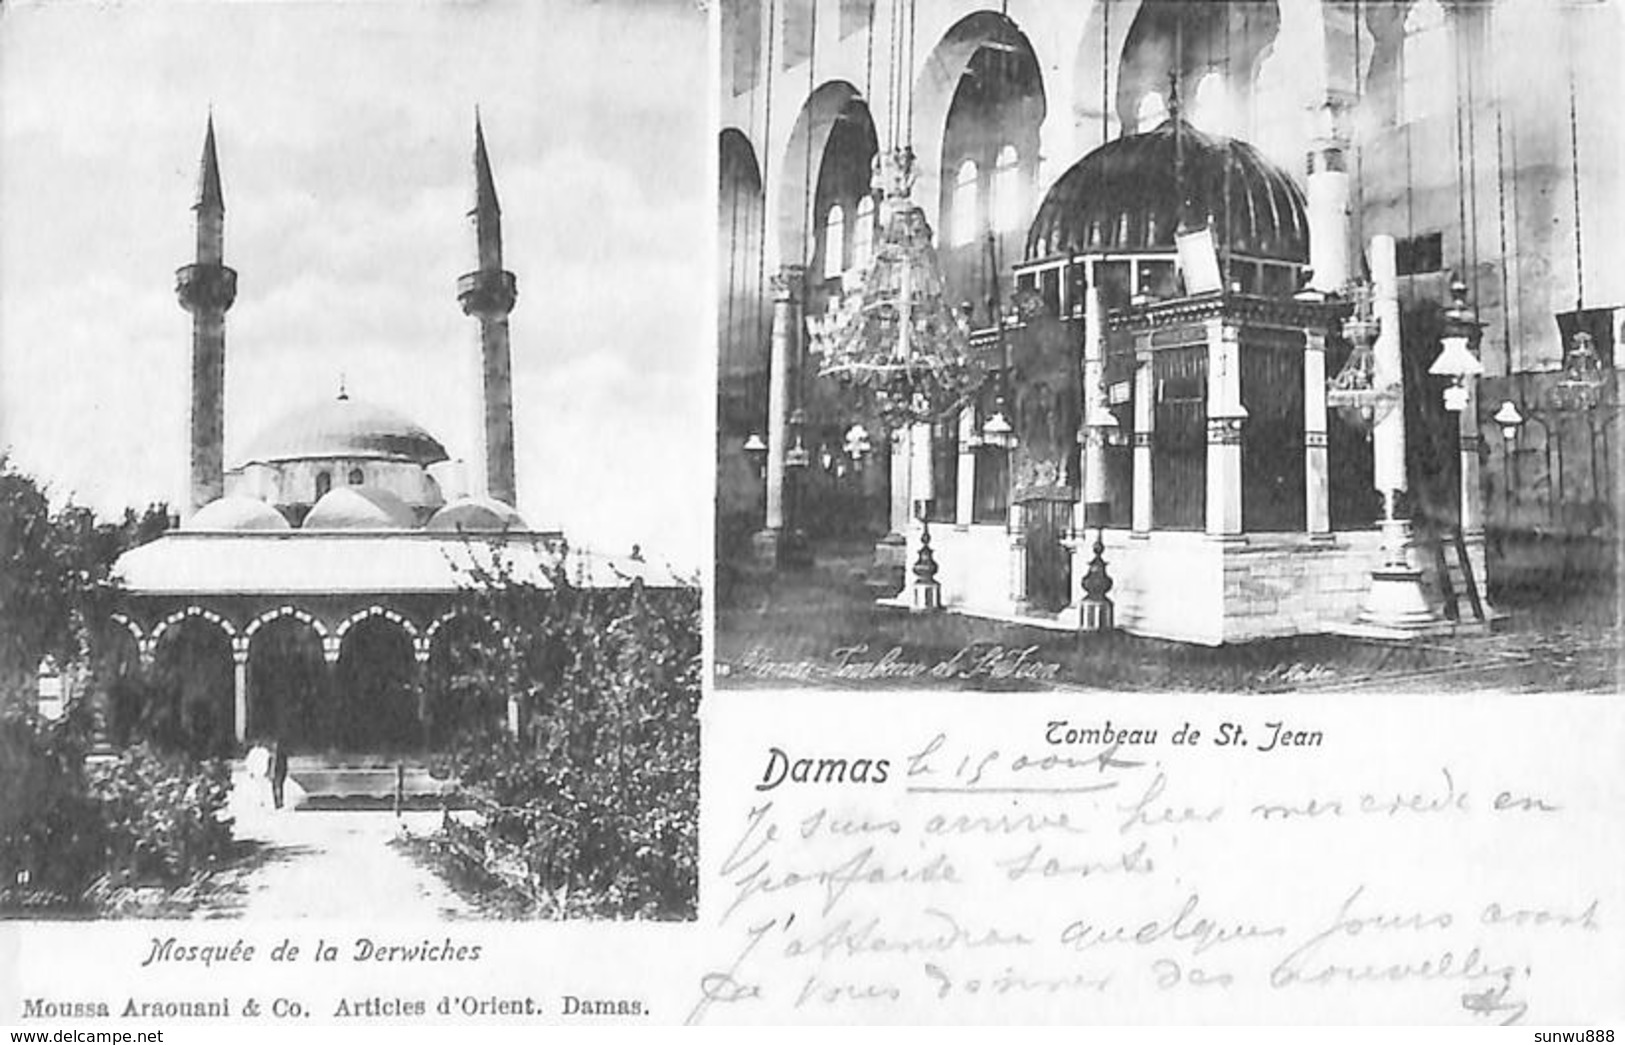 Damas - Tombeau de St Jean
Tombeau de St. Jean
Damas le 15 aout.
Je suis arrivé hier mercredi en
parfaite santé.
J'attendrai quelques jours avant
de vous donner des nouvelles.
Mosquée de la Derwiches
Moussa Araouani & Co. Articles d'Orient. Damas.
delcampe.net
sunwu888